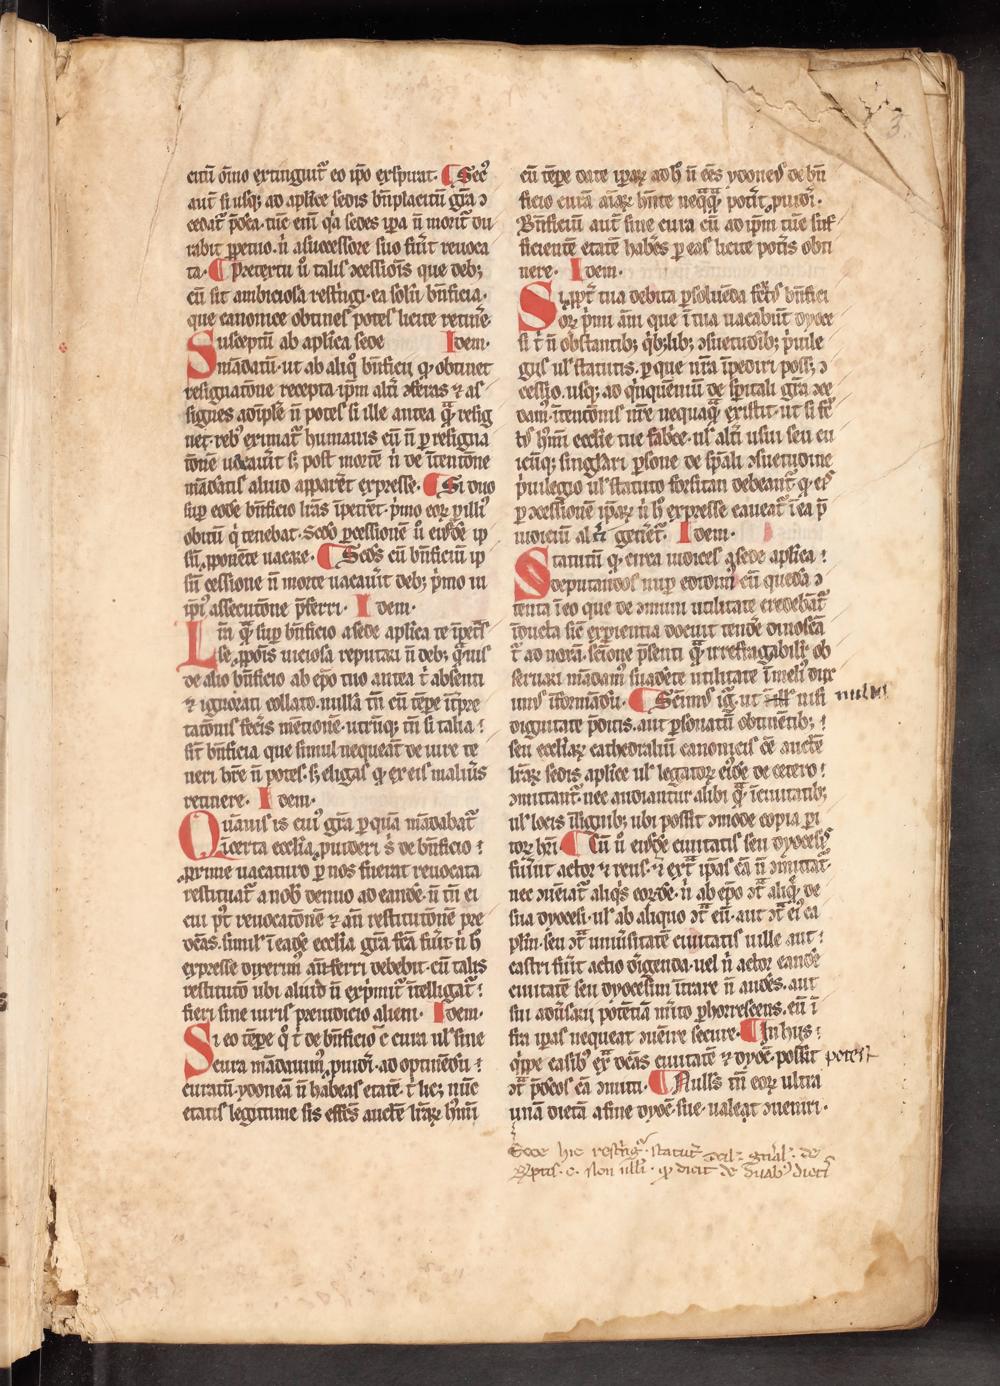 citū oīno extinguit᷑ eo ip̄o exspirat. ¶ Sec᷒
aut si usq; ad aplice sedis bn̄placitū gr̄a ↄ
cedat᷑ p̄dc̄a. tūc eni᷒ q̄a sedes ip̄a n̄ morit᷑ du
rabit ꝑpetuo. n̄ a successore suo fu͛it revoca
ta. ¶ Preterea u͛ talis ↄcessiōis que deb;
cū sit ambiciosa restr̄igi. ea solū bn̄ficia.
que canonice obtines potes licite retin̄e.
Susceptū ab aplica sede Idem.
mādatū. ut ab aliqͦ bn̄ficii q. obtinet
resignatōne recepta ip̄m alt̄i ↄferas ⁊ as
signes adīple n̄ potes si ille antea q̄ꝫ resig
net. reb᷒ eximat᷑ humanis cū n̄ ꝑ resigna
tōnē vacau͛it sꝫ post mortē n̄ de ītentōne
mādatis aliud apparet expresse. ¶ Si duo
suꝑ eodē bn̄ficio lr̄as īpetret. p̄mo eoꝝ ꝑ illi᷒
obitū q̇ tenebat. Scd͛o ꝑ cessionē u͛ eiusdē ip
sū ꝓponēte vacare. ¶ Scd᷒s cū bn̄ficiū ip
sū cessione n̄ morte vacau͛it deb; p̄mo in
ip̄i᷒ assecutōne p̄ferri. Idem.
Lin q̄ꝫ suꝑ bn̄ficio a sede aplica te īpet͛s
se. ꝓpōis viciosa reputari n̄ deb; q̄uis
de alio bn̄ficio ab ep̄o tuo antea t᷑ absenti
⁊ ignorāti collato. nullā tn̄ cū tēꝑe īt͛pre
tatōnis fec͛is mētionē. utrūq; tn̄ si talia
sīt bn̄ficia que simul nequeant de iure te
neri hr̄e n̄ potes. sꝫ eligas q. ex eis malu͛is
retinere. Idem.
Quāuis is cui᷒ gr̄a ꝑ quā mādabat᷑
ī certa ecclīa ꝓuideri s᷑ de bn̄ficio
ꝓxime vacaturo ꝑ nos fuerat revocata
restituat᷑ a nob᷒ denuo ad eandē. n̄ tn̄ ei
cui pt᷑ revocatōnē ⁊ an̄ restitutōnē pre
dc̄as. simil᷑ ī eadē ecclīa gr̄a fc̄a fu͛it n̄ h͛
expresse dixerim᷒ an̄ferri debebit. cū talis
restitutō ubi aliud n̄ exp̄mit᷑ ītelligat᷑
fieri sine iuris preiudicio alieni. Idem.
Si eo tēꝑe qͦ t᷑ de bn̄ficio cū cura ul᷑ sine
cura mādauim᷒ ꝓuid͛i. ad optinēdū
curatū. ydoneā n̄ habeas etatē. t᷑ licꝫ nūc
etatis legitime sis effc̄s auctē lr̄aꝝ h᷒mōi
cū tēꝑe date ip̄aꝝ ad h͛ n̄ eēs ydone᷒ de bn̄
ficio curā aīaꝝ hn̄te neq̄q̄ꝫ pot͛it ꝓuid͛i.
Bn̄ficiū aut᷑ sine cura cū ad ip̄m tūc suf
ficientē etatē hab͛es ꝑ eas licite pot͛is obti
nere. Idem.
Si ꝓpt᷑ tua debita ꝑsoluēda fc̄t᷒ bn̄fici
oꝝ p̄mi āni que ī tua vacabūt dyoce
si t᷑ n̄ obstantib; q̇b;lib; ↄsuetudīb; p̄uile
giis ul᷑ statutis. ꝑ que nr̄a īpediri poss; ↄ
cessio. usq; ad q̇nquēniū de sp̄itali gr̄a ↄce
dam᷒. ītentōnis nr̄e nequaq̄ꝫ existit. ut si fc̄
t᷒ h᷒mōi ecclīe tue fab͛ice. ul᷑ alt͛i usui seu cu
icūq; singlari ꝑsone de sp̄ali ↄsuetudine
p̄uilegio ul᷑ statuto forsitan debeant᷑ q. ei᷒
ꝑ ↄcessionē ip̄aꝝ n̄ h͛ expresse caveat᷑ ī ea p̄
iudiciū aliq̇ gen͛et᷑. Idem.
Statutū q. circa iudices a sede aplica
deputandos nuꝑ edidim᷒ cū quedā ↄ
tenta ī eo que de ↄmuni utilitate credebat᷑
īducta sic᷑ experientia docuit tende dinoscā
t᷑ ad noxā. sc̄ione p̄senti q̄ꝫ irrefragabilit᷑ ob
servari mādam᷒ suadēte utilitate ī meli᷒ dux
im᷒ iformādū. ¶ Scīm᷒ ig᷑. ut nisi nullis
dignitate p̄ditis. aut ꝑsonatū obtinētib;
seu ecclīaꝝ cathedraliū canonicis cē auctē
lr̄aꝝ sedis aplice ul᷑ legatoꝝ ei᷒dē de cetero
ↄmittant᷑. nec audiantur alibi q̄ꝫ ī ciuitatib;
ul᷑ locis īsignib; ubi possit ↄmode copia ꝑi
toꝝ hr̄i. ¶ Cū u͛ ei᷒dē ciuitatis seu dyocesis
fu͛int actor ⁊ reus. ⁊ ext᷑ ip̄as cā n̄ ↄmittat᷑.
nec ↄueniat᷑ aliq̇s eorūdē. n̄ ab ep̄o ↄt᷑ aliq̇. de
sua dyocesi. ul᷑ ab aliquo ↄt᷑ eū. aut ↄt᷑ ei᷒ ca
pl̄m. seu ↄt᷑ uniu͛sitatē ciuitatis uille aut
castri fu͛it actio dirigenda. uel n̄ actor eandē
ciuitatē seu dyocesim ītrare n̄ audēs. aut
sui adu͛sarii potētiā m͛ito ꝑhorrescens. eū ī
fra ip̄as nequeat ↄuēire secure. ¶ In hiis
q̇ppe casib᷒ ext᷑ dc̄as ciuitatē ⁊ dyoc̄. possit potest
ↄt᷑ p̄dc̄os cā ↄmitti. ¶ Null᷒s tn̄ eoꝝ ultra
unā dietā a fine dyoc̄. sue. valeat ↄueniri.
hic restrīg᷑. statut᷑ ꝯcil. gn̄al. de
Rptis. c. Non ulli. qd dicit de duab᷒ dietis